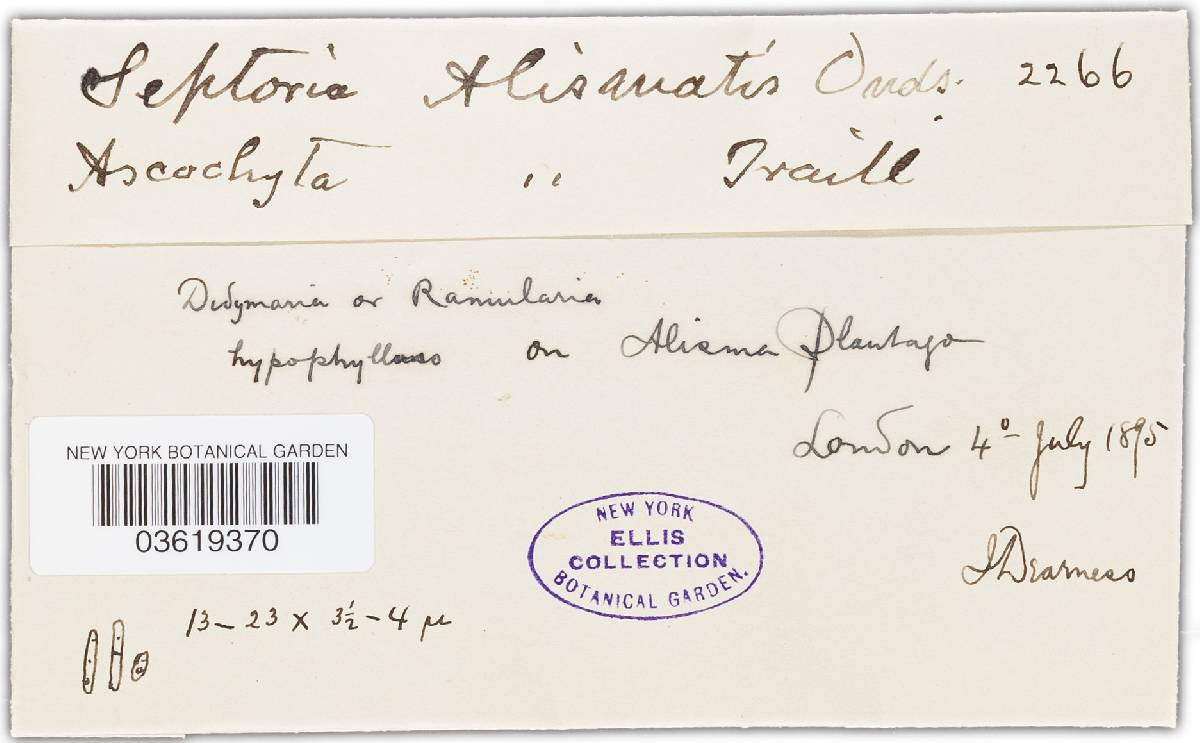 Septoria Alismatis Ouds. 2266
Ascochyta " Traill
Didymaria or Ramularia
hypophyllous on Alisma Plantago
London 4º July 1895
NEW YORK BOTANICAL GARDEN
03619370
NEW YORK
ELLIS
COLLECTION
BOTANICAL GARDEN.
JDearness
13 – 23 x 3½ – 4 µ